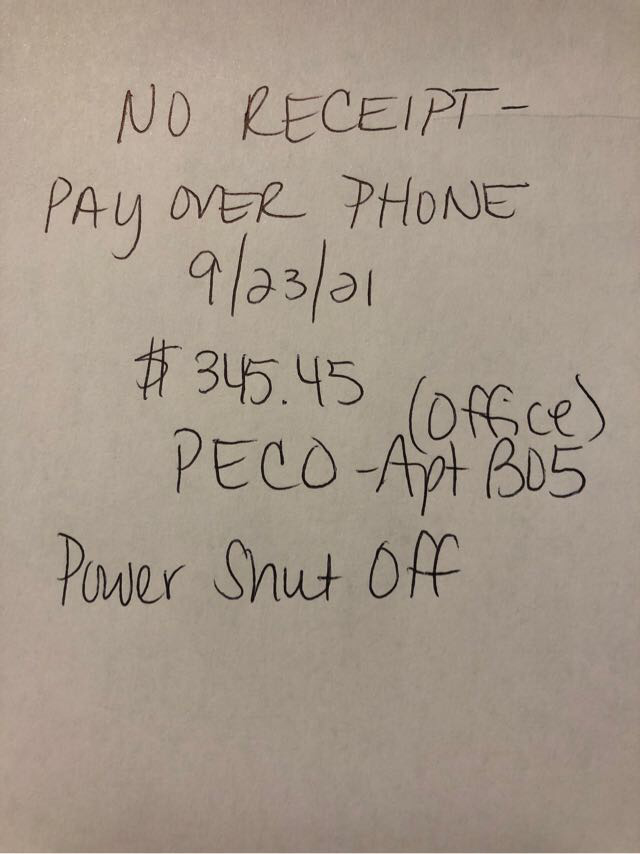 NO RECEIPT-
PAY OVER PHONE
9/23/21
$345.45
(Office)
PECO-Apt B05
Power Shut Off